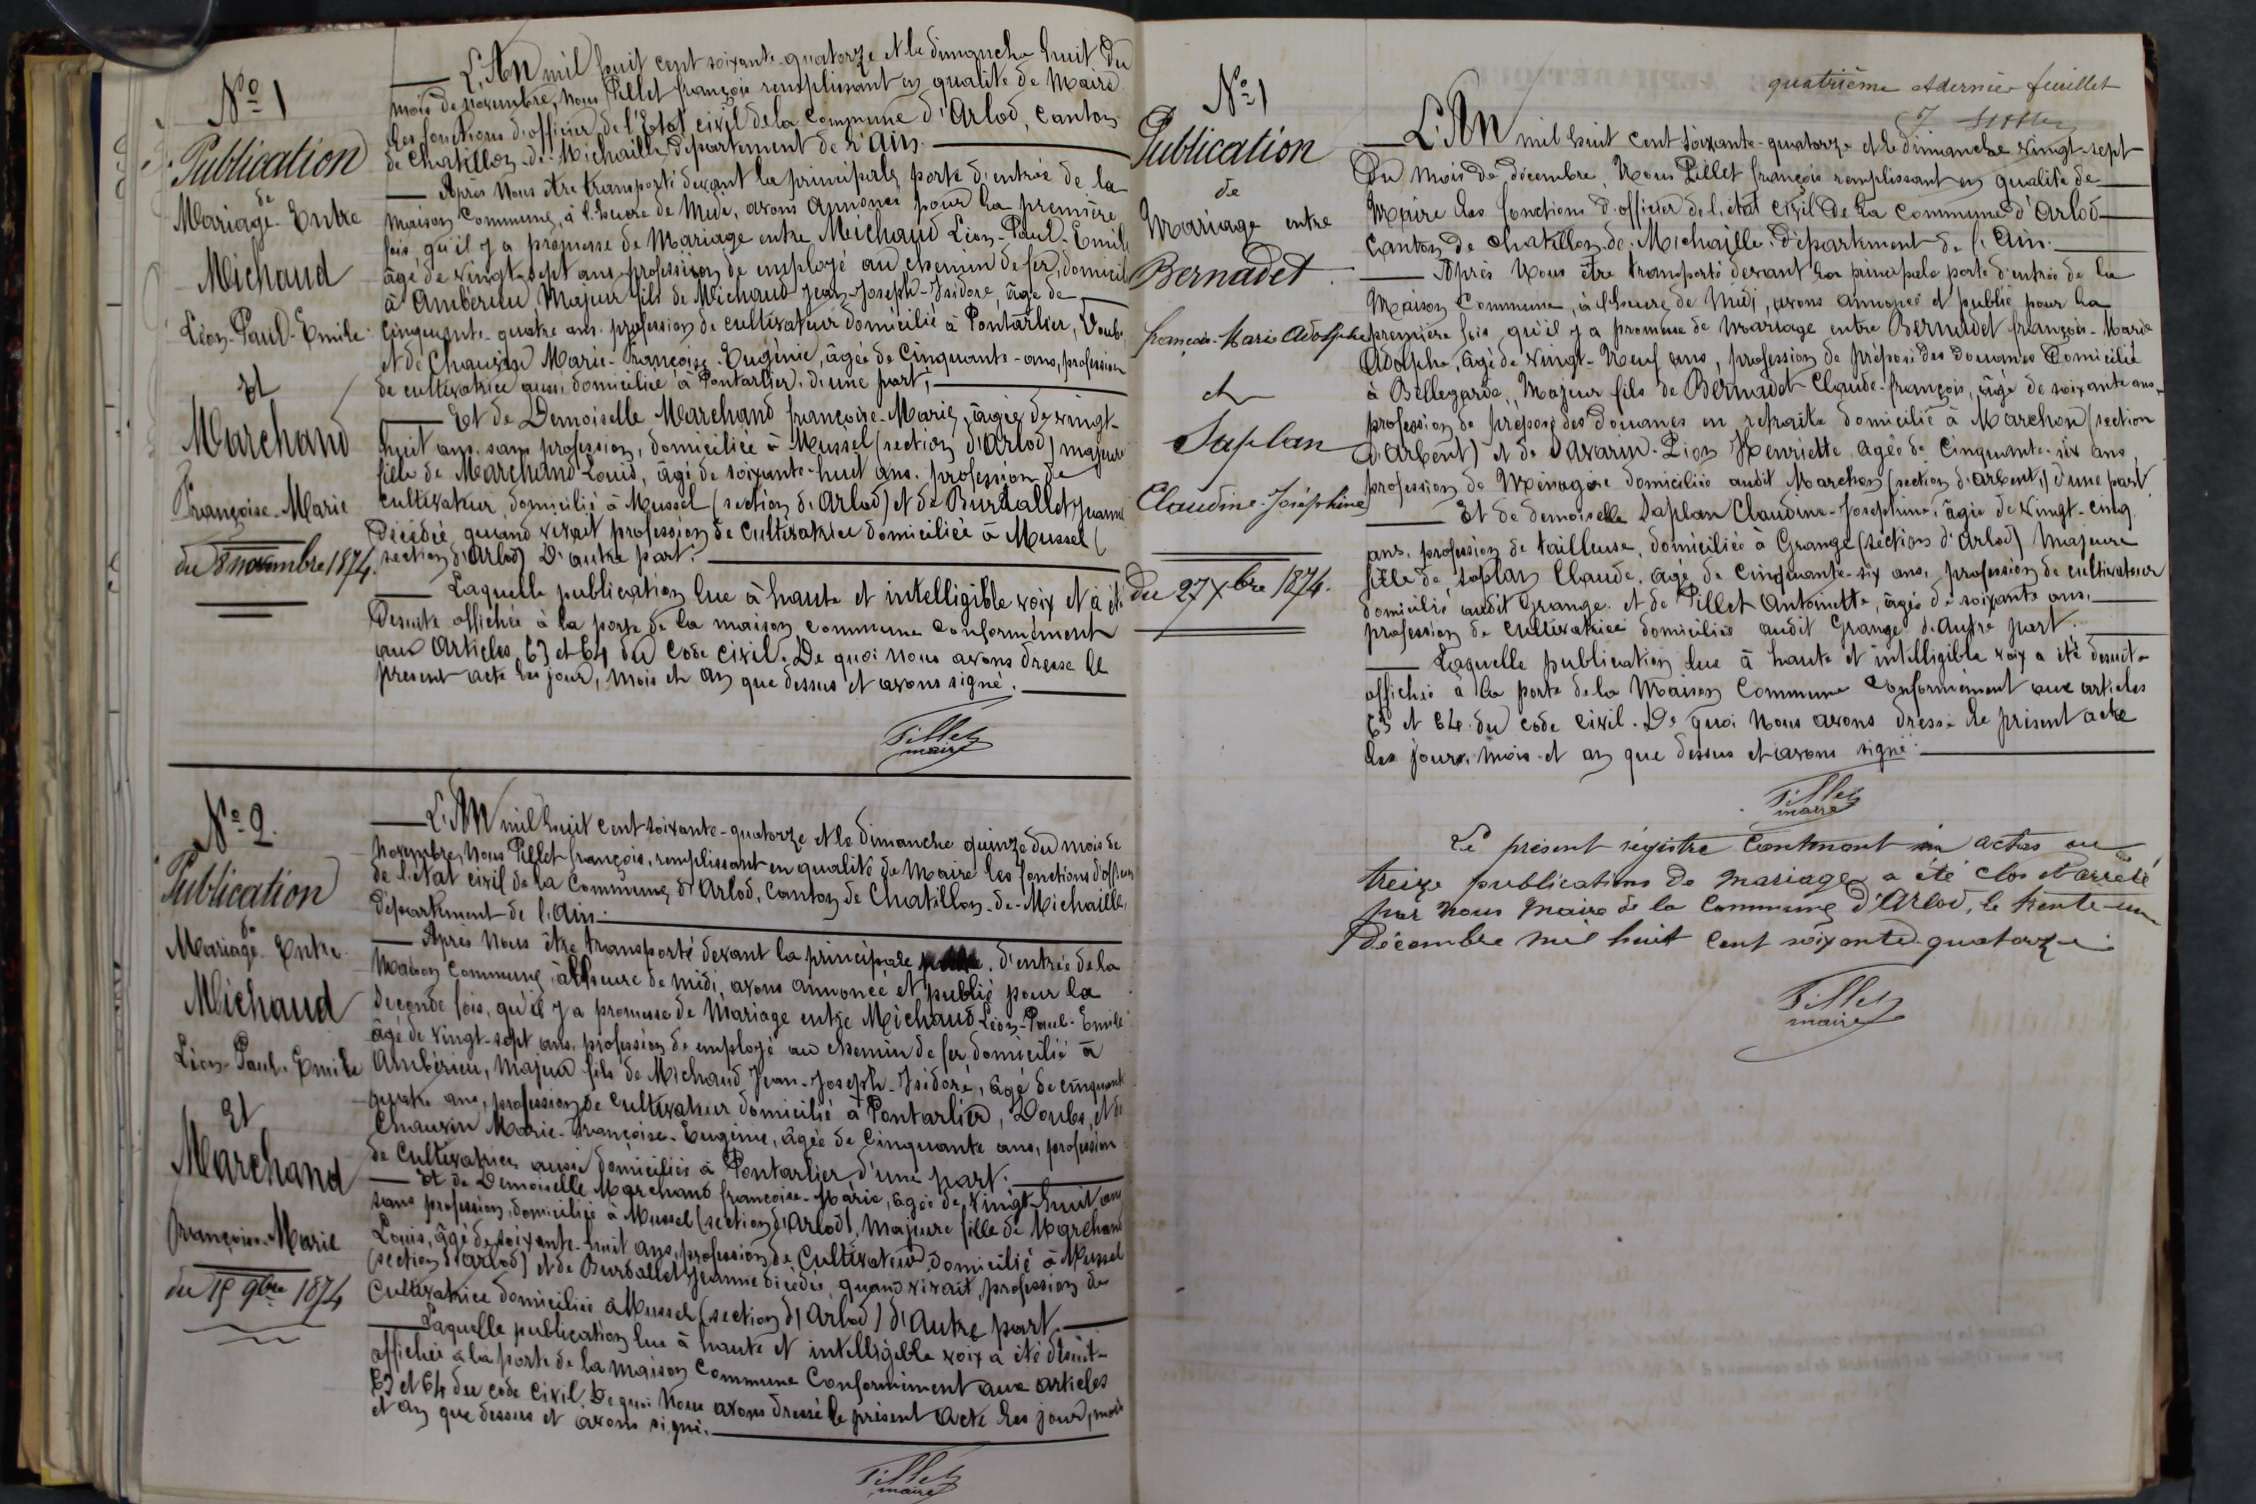 N° 1
Publication
de
Mariage Entre
Michaud
Léon-Paul-Emile
Et
Marchand
Françoise-Marie
du 8 novembre 1874.
L'An mil huit cent soixante-quatorze et le dimanche huit du
mois de novembre, nous Pillet françois remplissant en qualité de Maire
les fonctions d'officier de l'Etat civil de la Commune d'Arlod, canton
de Chatillon-de-Michaille département de l'Ain.
Après nous être transporté devant la principale porte d'entrée de la
maison commune, à l'heure de midi, avons annoncé pour la première
fois, qu'il y a promesse de Mariage entre Michaud Léon-Paul-Emile
âgé de vingt-sept ans profession de employé au chemin de fer, domicil
à Ambérieu Majeur fils de Michaud Jean-Joseph-Isidore, âgé de
Cinquante-quatre ans profession de cultivateur domicilié à Pontarlier, Doubs
et de Chauvin Marie-Françoise-Eugénie, âgée de Cinquante-ans, profession
de cultivatrice aussi domiciliée à Pontarlier, d'une part;
Et de Demoiselle Marchand françoise-Marie, âgée de vingt-
huit ans, sans profession, domiciliée à Mussel (section d'Arlod) majeure
fille de Marchand Louis, âgé de soixante-huit ans, profession de
cultivateur, domicilié à Mussel (section d'Arlod) et de Burdallet Jeanne
Décédée, quand vivait profession de Cultivatrice domiciliée à Mussel (
section d'Arlod) D'autre part.
Laquelle publication lue à haute et intelligible voix et a été
Desuite affichée à la porte de la maison commune conformément
aux Articles 63 et 64 du Code civil. De quoi nous avons dressé le
présent acte les jour, mois et an que dessus et avons signé.
Pillet
maire
N° 2.
Publication
de
Mariage Entre
Michaud
Léon-Paul-Emile
Et
Marchand
françoise-Marie
du 15 9bre 1874
L'An mil huit cent soixante-quatorze et le dimanche quinze du mois de
Novembre, Nous Pillet françois, remplissant en qualité de Maire les fonctions d'officier
de l'état civil de la Commune d'Arlod, Canton de Chatillon-de-Michaille,
département de l'Ain.
Après Nous être transporté devant la principale d'entrée de la
Maison Commune, à l'heure de midi, avons annoncé et publié pour la
seconde fois, qu'il y a promesse de Mariage entre Michaud Léon-Paul-Emile
âgé de vingt-sept ans, profession de employé au chemin de fer domicilié à
Ambérieu, majeur fils de Michaud Jean-Joseph-Isidore, âgé de cinquante
quatre ans, profession de Cultivateur domicilié à Pontarlier, Doubs, et de
Chauvin Marie-Françoise-Eugénie, âgée de Cinquante ans, profession
de Cultivatrice aussi domiciliée à Pontarlier, d'une part.
Et de Demoiselle Marchand françoise-Marie, âgée de Vingt-huit ans
sans profession, domiciliée à Mussel (section d'Arlod), Majeure fille de Marchand
Louis, âgé de soixante-huit ans, profession de Cultivateur, domicilié à Mussel
(section d'Arlod) et de Burdallet Jeanne décédée, quand vivait, profession de
Cultivatrice domiciliée à Mussel (section d'Arlod) d'Autre part.
Laquelle publication lue à haute et intelligible voix a été desuite
affichée à la porte de la maison Commune Conformément aux articles
63 et 64 du code civil. De quoi Nous avons dressé le présent acte les jour, mois
et an que dessus et avons signé.
Pillet
maire
N° 1
Publication
de
Mariage entre
Bernadet
françois-Marie Adolphe
et
Saplan
Claudine-Joséphine
du 27 Xbre 1874.
quatrième et dernier feuillet
L'An mil huit cent soixante-quatorze et le dimanche vingt-sept
Du mois de décembre, Nous Pillet françois remplissant en qualité de
Maire les fonctions d'officier de l'état civil de la Commune d'Arlod
Canton de Chatillon-de-Michaille, département de l'Ain.
Après Nous être transporté devant la principale porte d'entrée de la
Maison Commune, à l'heure de Midi, avons annoncé et publié pour la
première fois qu'il y a promesse de mariage entre Bernadet françois-Marie
Adolphe, âgé de vingt-Neuf ans, profession de préposé des douanes Domicilié
à Bellegarde, Majeur fils de Bernadet Claude-françois, âgé de soixante ans,
profession de préposé des Douanes en retraite domicilié à Marchon (section
d'Arbent) et de Savarin-Lion Henriette, agée de Cinquante-six ans,
profession de Ménagère domiciliée audit Marchon (section d'Arbent,) d'une part
Et de demoiselle Saplan Claudine-Joséphine, âgée de vingt-cinq
ans, profession de tailleuse, domiciliée à Grange (section d'Arlod) Majeure
fille de Saplan Claude, âgé de Cinquante-six ans, profession de cultivateur
domicilié audit Grange et de Pillet Antoinette, âgée de soixante ans,
profession de cultivatrice domiciliée audit Grange d'autre part.
Laquelle publication lue à haute et intelligible voix a été desuite
affichée à la porte de la Maison Commune Conformément aux articles
63 et 64 du Code Civil. De quoi Nous avons dressé le présent acte
les jours, mois et an que dessus et avons signé.
Pillet
maire
Le présent registre Contenant actes ou
treize publications de mariages a été clos et arrêté
par nous Maire de la Commune d'Arlod, le trente-un
Décembre mil huit cent soixante-quatorze.
Pillet
maire